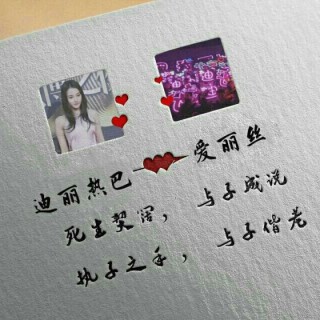 迪丽热巴 爱丽丝
死生契阔，与子成说
执子之手，与子偕老